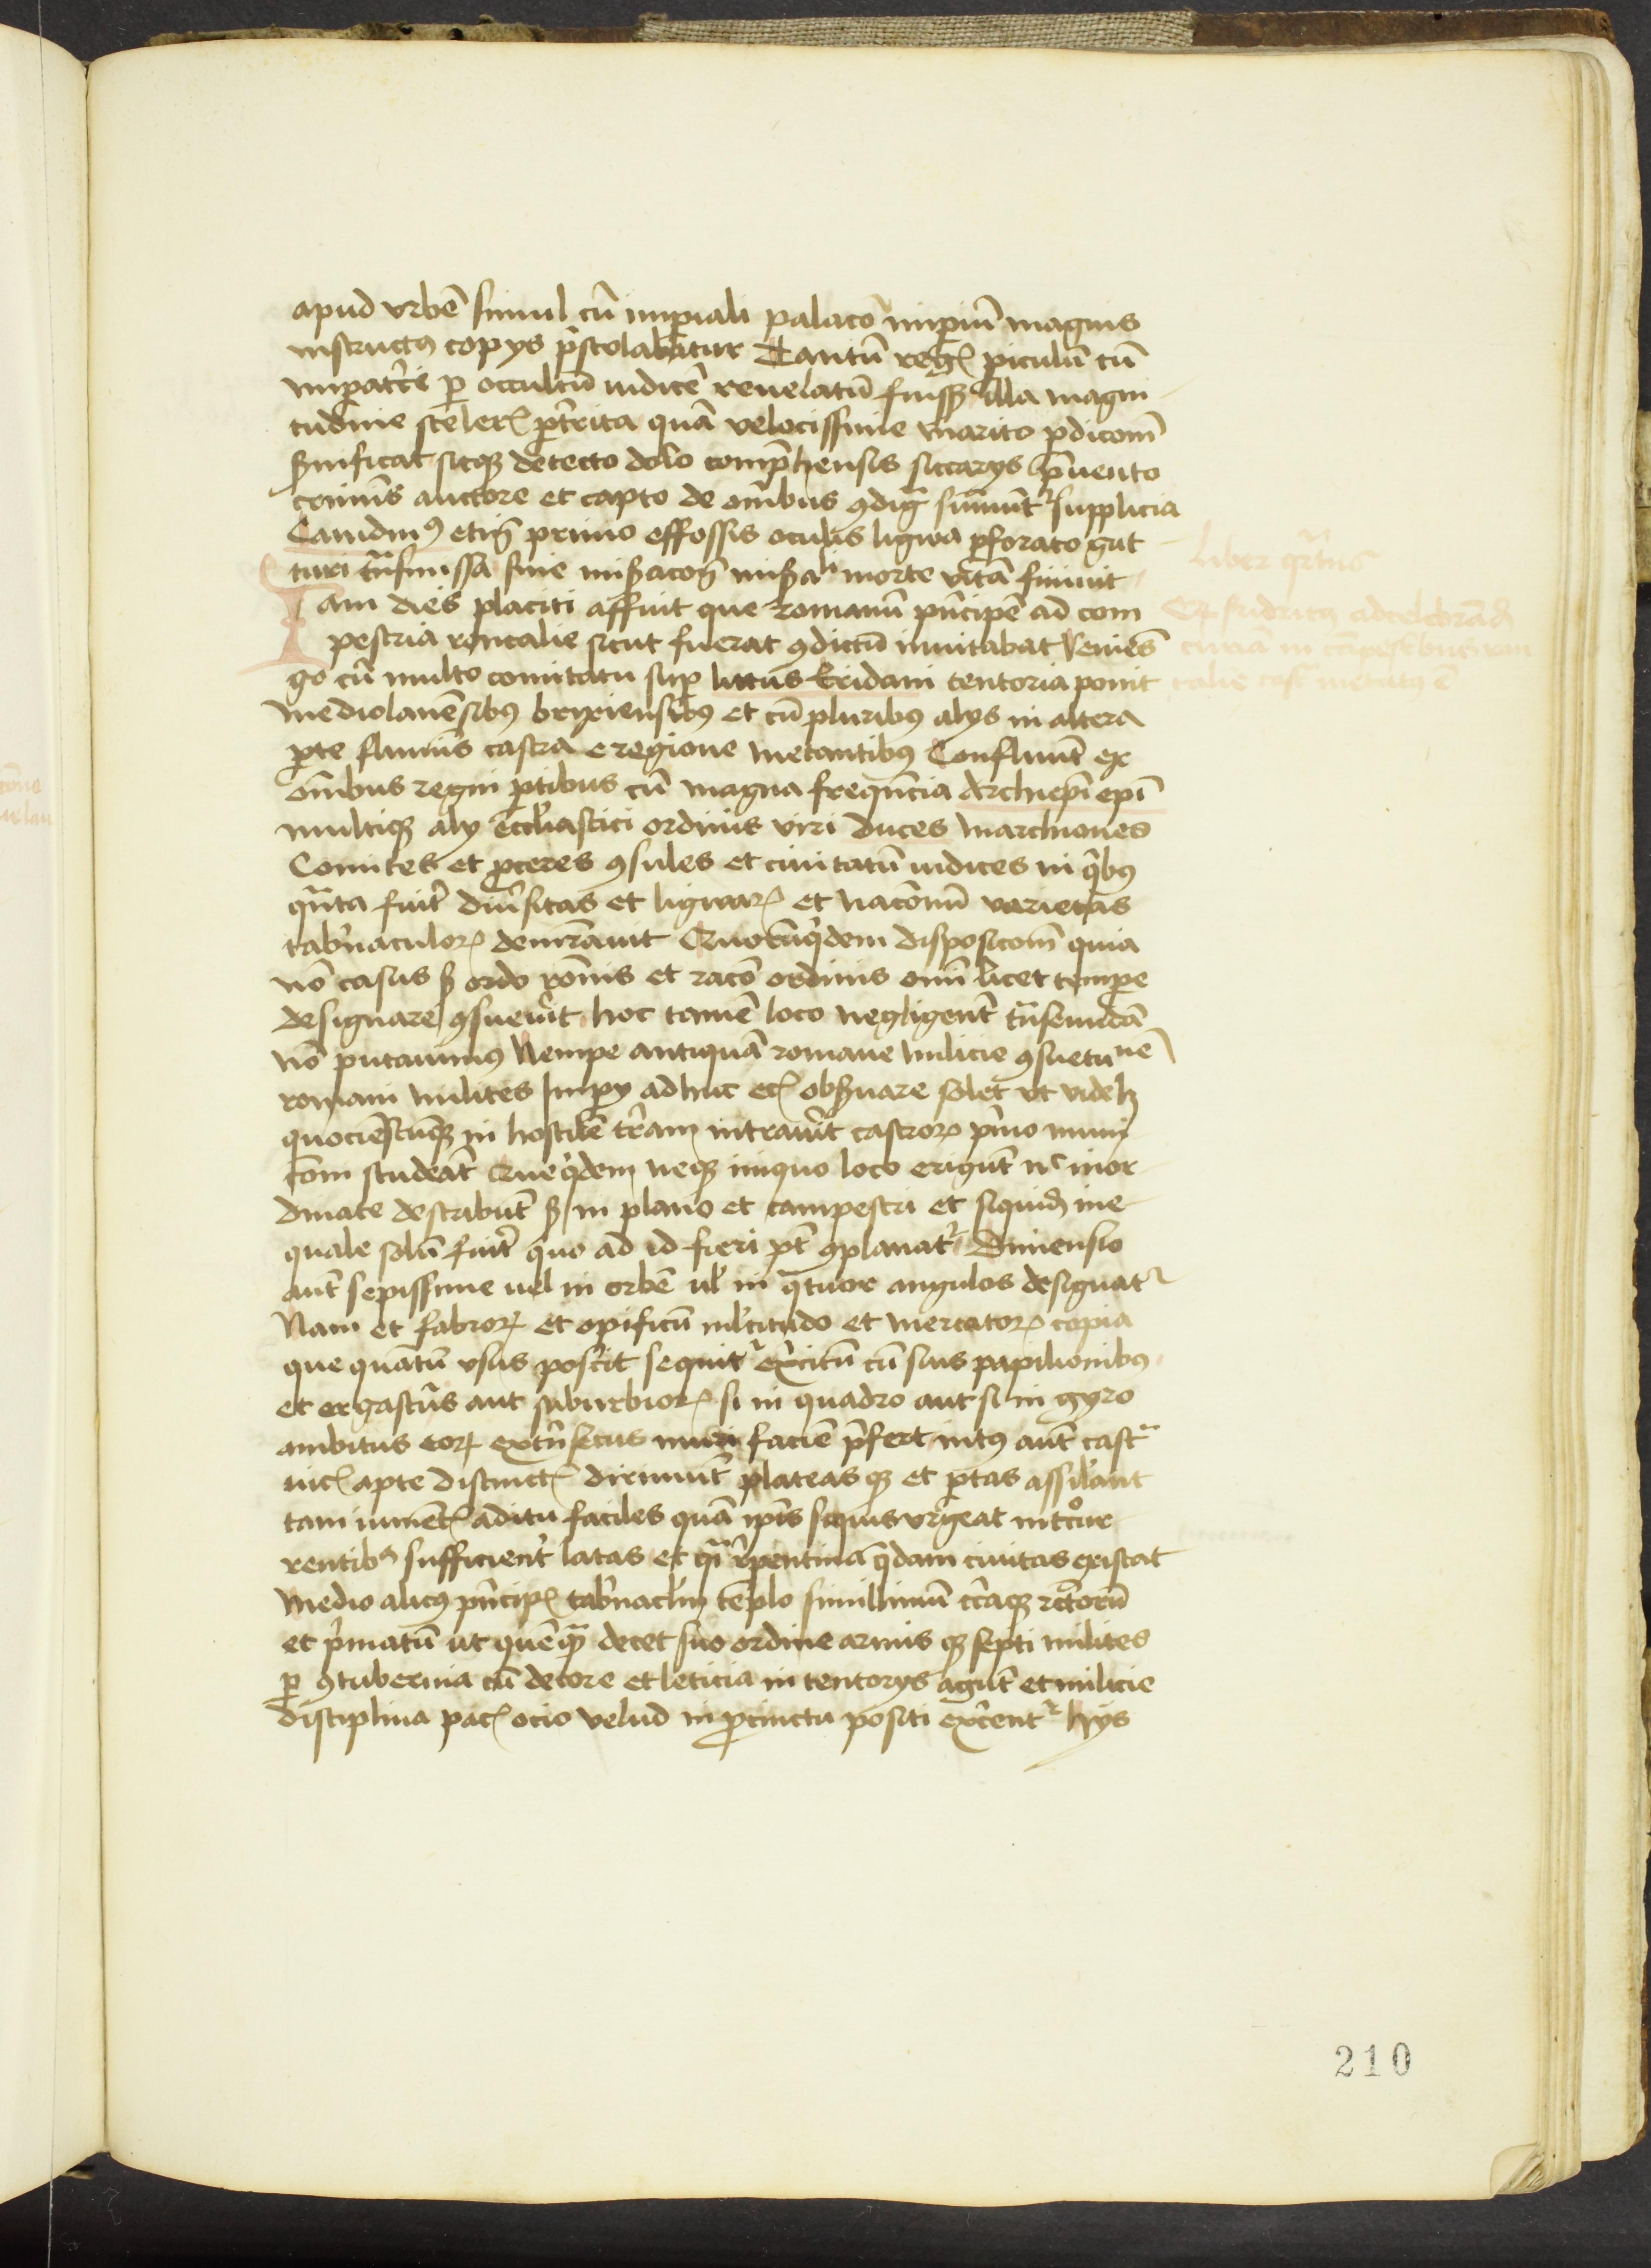 apud vrbē simul cū imp̄iali palacō imp̄iū magnis
instructꝰ copijs p̄stolabatur Tantū regꝭ p̄iculū cū
imp̄atrͥci ꝑ occultū iudicē reuelatū fuissꝫ illa magni
tudine scelerꝭ p̄tⁱrita quā velocissime marito p̄dicōm
sͥnificat sicqꝫ detecto dolo comp̄hensis siccarijs ꝯuento
crimīs auctore et capto de oīnibus ꝯdigᷓ sumunt᷑ supplicia
Canidinꝰ etig̃ primo effossis oculis ligwa p̄forato gut
turi trᷓnsmissa sine misͥacōe misͥaliͥ morte vitā finiuit
Iam dies placiti affuit que romanū prͥncipē ad com
pestria roncalie sicut fuerat ꝯdictū inuitabat Veniēs
go cū multo comitatu suꝑ littus Eridani tentoria ponit
Mediolanēsibꝰ brixiensibꝰ et cū pluribꝰ alijs in altera
ꝑte flumīs castra e regione metantibꝰ Confluūt ex
oīnibus regni ꝑtibus cū magna frequēncia Archiep̄i ep̄i
multiqꝫ alij eccl̄iastici ordinis viri duces Marchiones
Comites et ꝓceres ꝯsules et ciuitatū iudices in qͥbꝰ
qᷓnta fuit̄ diu̾sitas et ligwarꝝ et nacōnū varietas
tab̾naculorꝝ demrᷓauit Quorūqͥdem disposicōm quia
nō casus sꝫ ordo rōnis et racō ordinis omī licet tempe
designare ꝯsueu̾it hoc tamē loco negligent̄ trᷓnseundā
nō putauimꝰ Nempe antiquā romane milicie ꝯsuetunē
romani milites Imꝑij adhuc ecꝭ obs̾uare solet vt videlꝫ
quociēscūqꝫ in hostilē t̾ram intrau̾it castrorꝝ pͥmo muni
cōm studeāt Queqͥdem neqꝫ iniquo loco erigūt nͨ inor
dinate describūt sꝫ in plano et campestri et siquid̄ ine
quale solū fuit̾ quo ad id fieri pt̄ ꝯplanat᷑ Dimensio
aut̄ sepissime uel in orbē ul̄ in qᷓtuor angulos designat᷑
Nam et fabrorꝝ et opificū ml̄titudo et mercatorꝝ copia
que quātū vsus poscit sequit᷑ ex̾citū cū suis papilionibꝰ
et ergastu̾s aut suburbiorꝝ si in quadro aut si in gyro
ambitus eorꝝ extⁱnsecus muri faciē p̄fert intꝰ aūt castᷓ
uicꝭ apte distinctꝭ dirimūt plateas qꝫ et portas assil̾ant
tam iumētꝭ aditu faciles quā ip̄is siquis vrgeat intͦcur
rentibꝰ sufficient̾ latas et qⁱ r̾pentina qᷓdam ciuitas existat
Medio alicꝰ prͥncipꝭ tab̾nacl̾m templo simillimū c̾caqꝫ rctͦorū
et pͥmatū ut quēqꝫ decet suo ordine armis qꝫ septi milites
ꝑ ꝯtubernia cū decore et leticia in tentorijs agūt et milicie
disciplina pacꝭ ocio velud in ꝓcinctu positi ex̾cent᷑ hijs
Liber qᷓrtus
Cꝙ fridricꝰ ad celebrād̄
curiā in cāpestribus ron
calie castᷓ metatꝰ ē
210